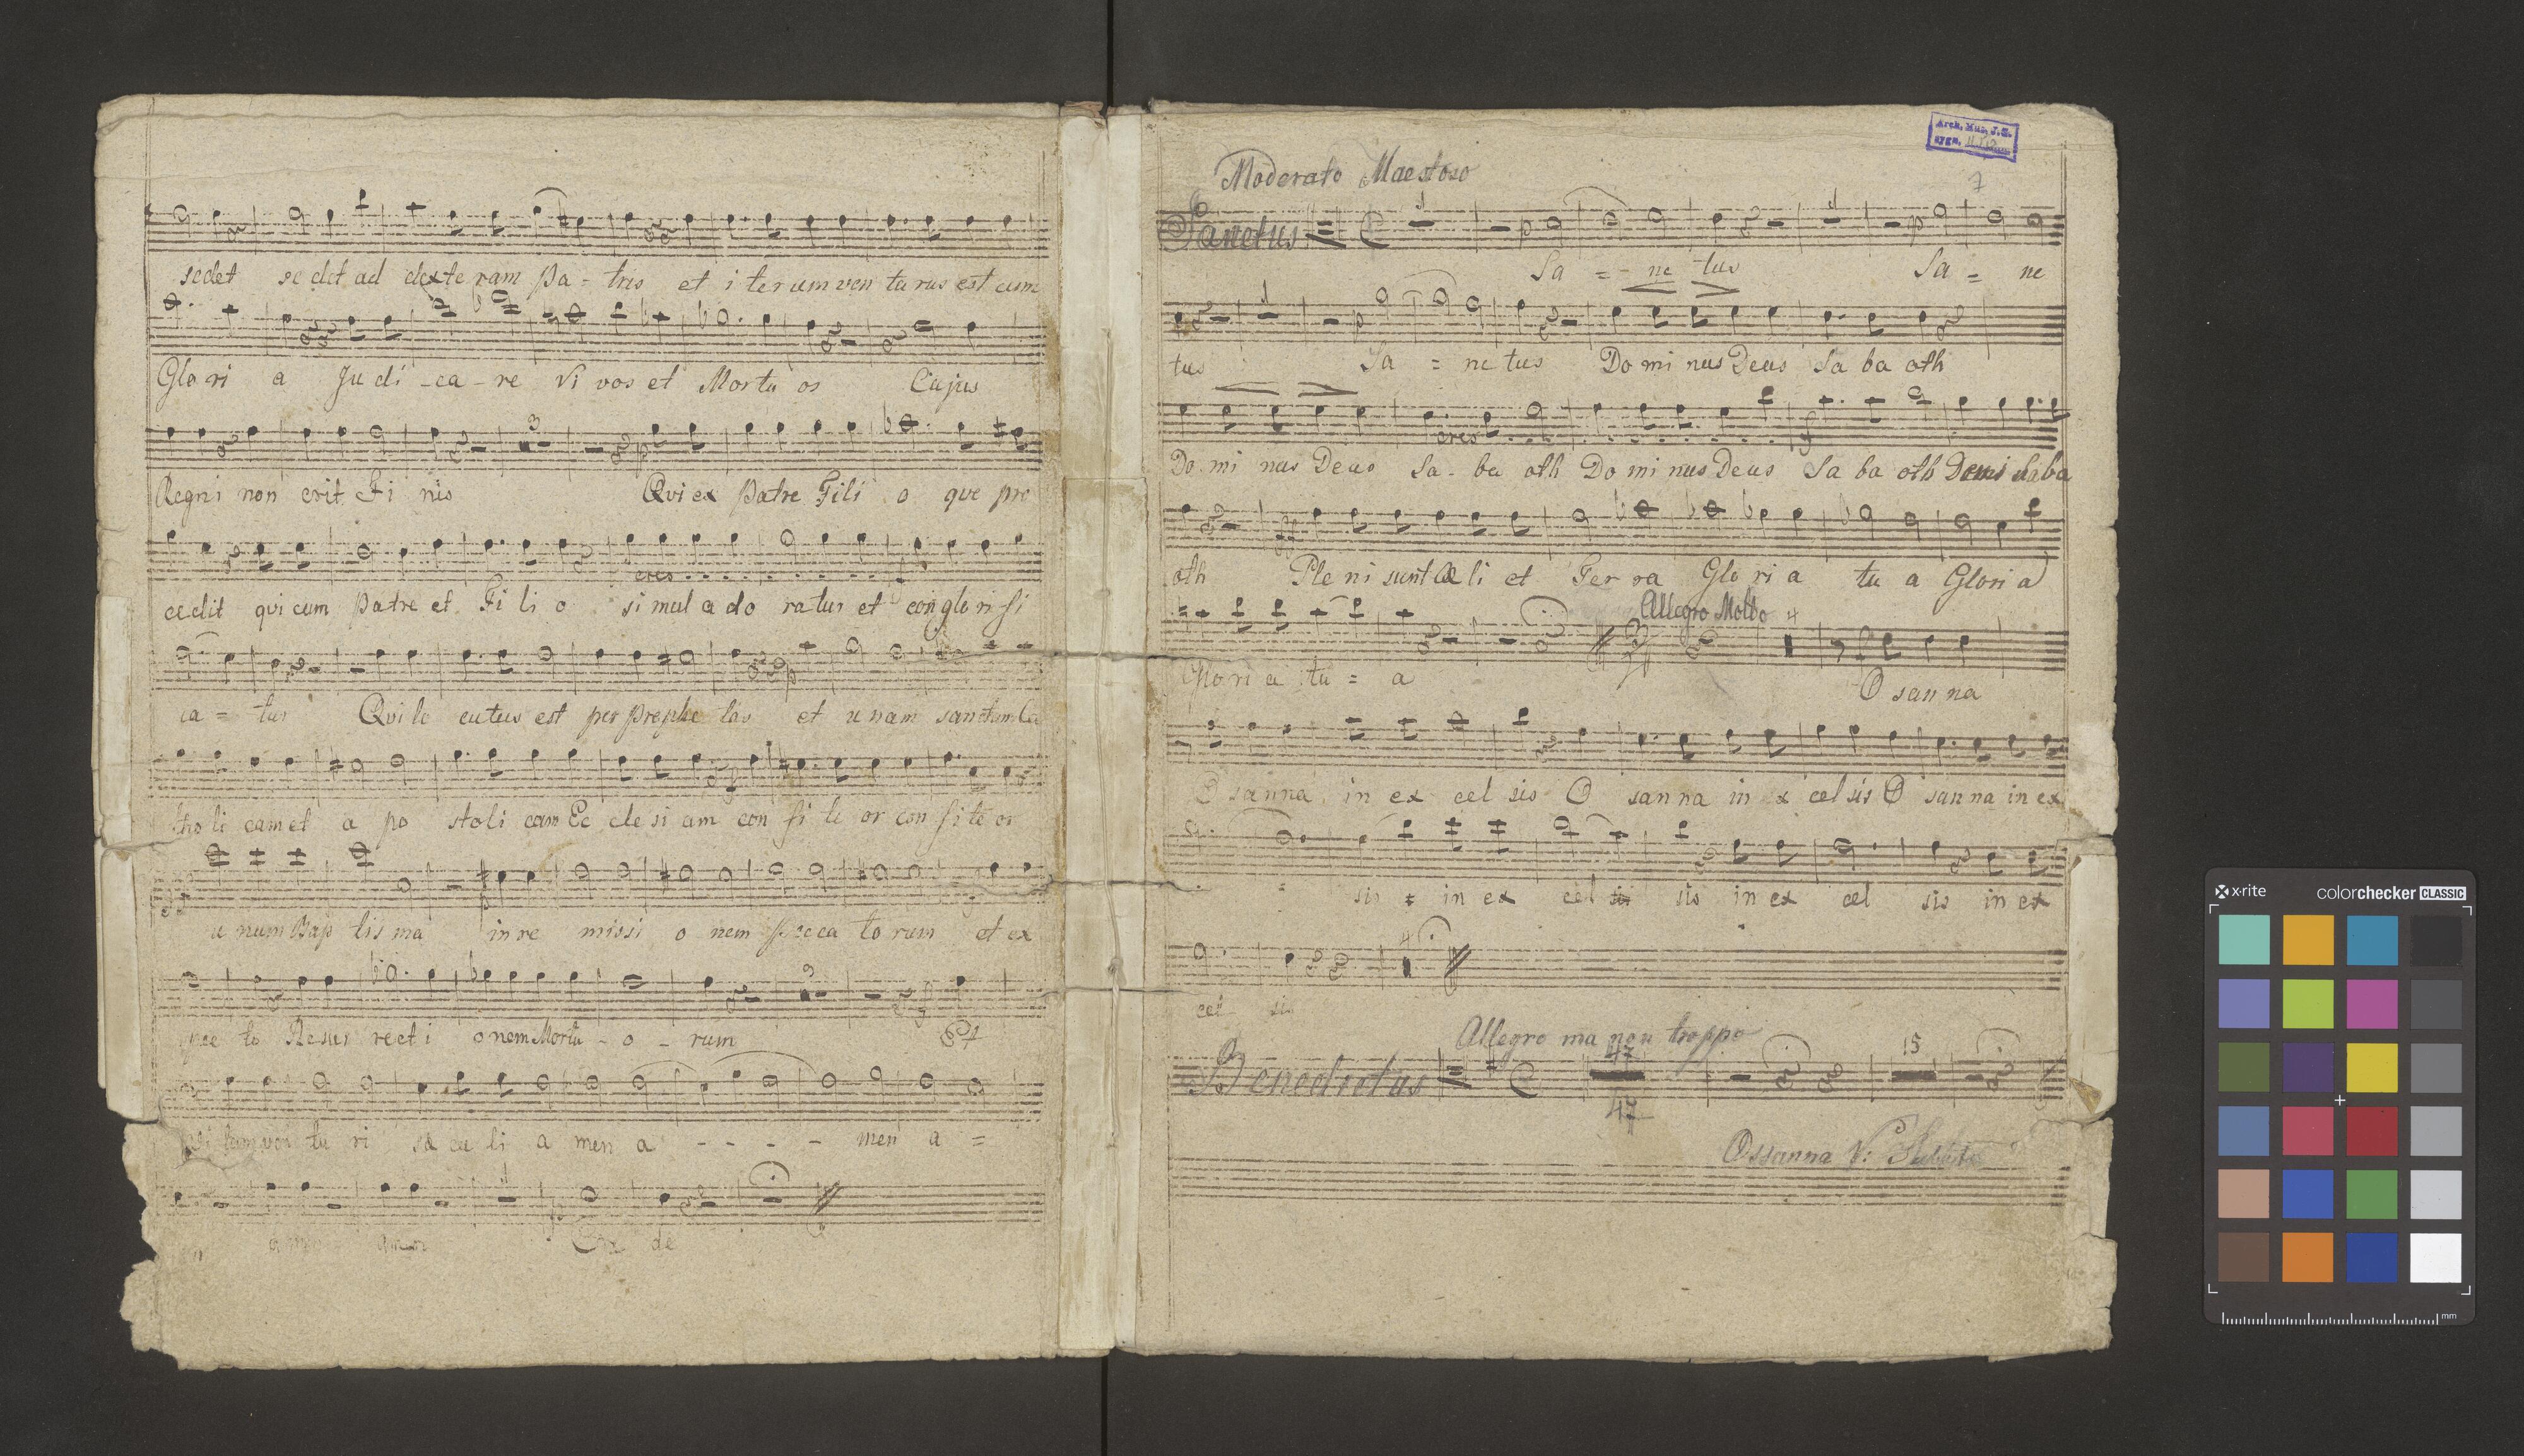 sedet sedet ad dexte ram Pa - tris et i terum ven tu rus est cum
Glo ri a Ju di - ca - re Vi vos et Mortu os Cujus
Regni non erit Fi nis Qui ex Patre Fili o que pro
cres
cedit qui cum Patre et Fi li o si mul a do ratur et conglo ri fi
ca = tur Qui lo cutus est per Prophe tas et u nam sanctam Ca
tho li cam et a po stoli cam Ec cle si am con fi te or con fi te or
u num Bap tis ma in re missi o nem pecca to rum et ex
pec to Resur recti onem Mortu - o - rum Et
Vi tam ven tu ri sæ cu li a men a - - - - men a =
amen amen Cre de
Arch. Mus. J. G.
sygn.
7
Moderato Maestoso
Sanctus
Sa = - nc tus Sa = nc
tus Sa = nc tus Do mi nus Deus Sa ba oth
cres
Do mi nus Deus Sa - ba oth Do mi nus Deus Sa ba oth Saba
oth Ple ni sunt Cæ li et Ter ra Glo ri a tu a Glori a
Allegro Molto 4
Glo ri a tu = a O san na
O sanna in ex cel sis O san na in x cel sis O san na in ex
sis in ex cel sis in ex cel sis in ex
4
cel sis
Allegro ma non troppo
Benedictus 47 15
47
Ossanna V: Subito
x-rite colorchecker CLASSIC
mm